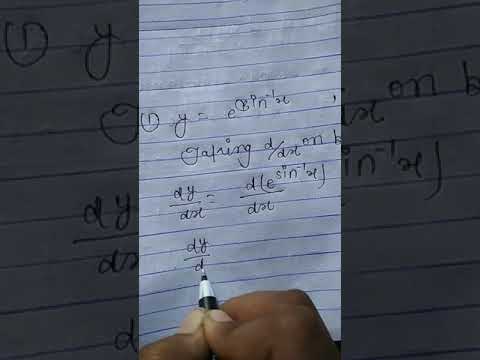 ① y = e^sin⁻¹x ,
Taking d/dx on b
dy/dx = d(e^sin⁻¹x)/dx
dy/d